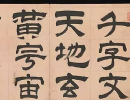 千字文
天地玄
黄宇宙